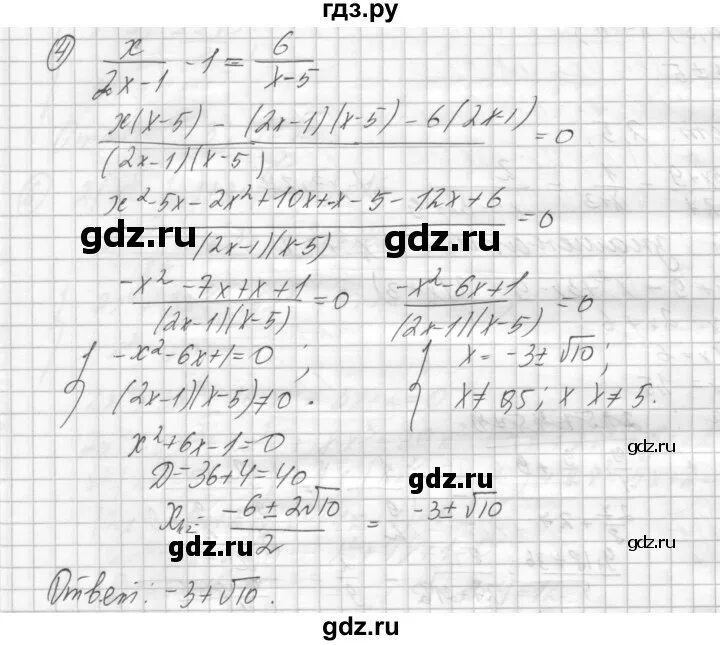 гдз.ру
④ x/(2x-1) - 1 = 6/(x-5)
(x(x-5) - (2x-1)(x-5) - 6(2x-1))/((2x-1)(x-5)) = 0
(x² - 5x - 2x² + 10x + x - 5 - 12x + 6)/((2x-1)(x-5)) = 0
gdz.ru gdz.ru
(-x² - 7x + x + 1)/((2x-1)(x-5)) = 0 (-x² - 6x + 1)/((2x-1)(x-5)) = 0
{ -x² - 6x + 1 = 0 ; { x = -3 ± √10 ;
(2x-1)(x-5) ≠ 0 . x ≠ 0,5 ; x x ≠ 5.
gdz.ru
x² + 6x - 1 = 0
D = 36 + 4 = 40
gdz.ru
x₁,₂ = (-6 ± 2√10)/2 = -3 ± √10
gdz.ru gdz.ru
Ответ: -3 ± √10 .
gdz.ru